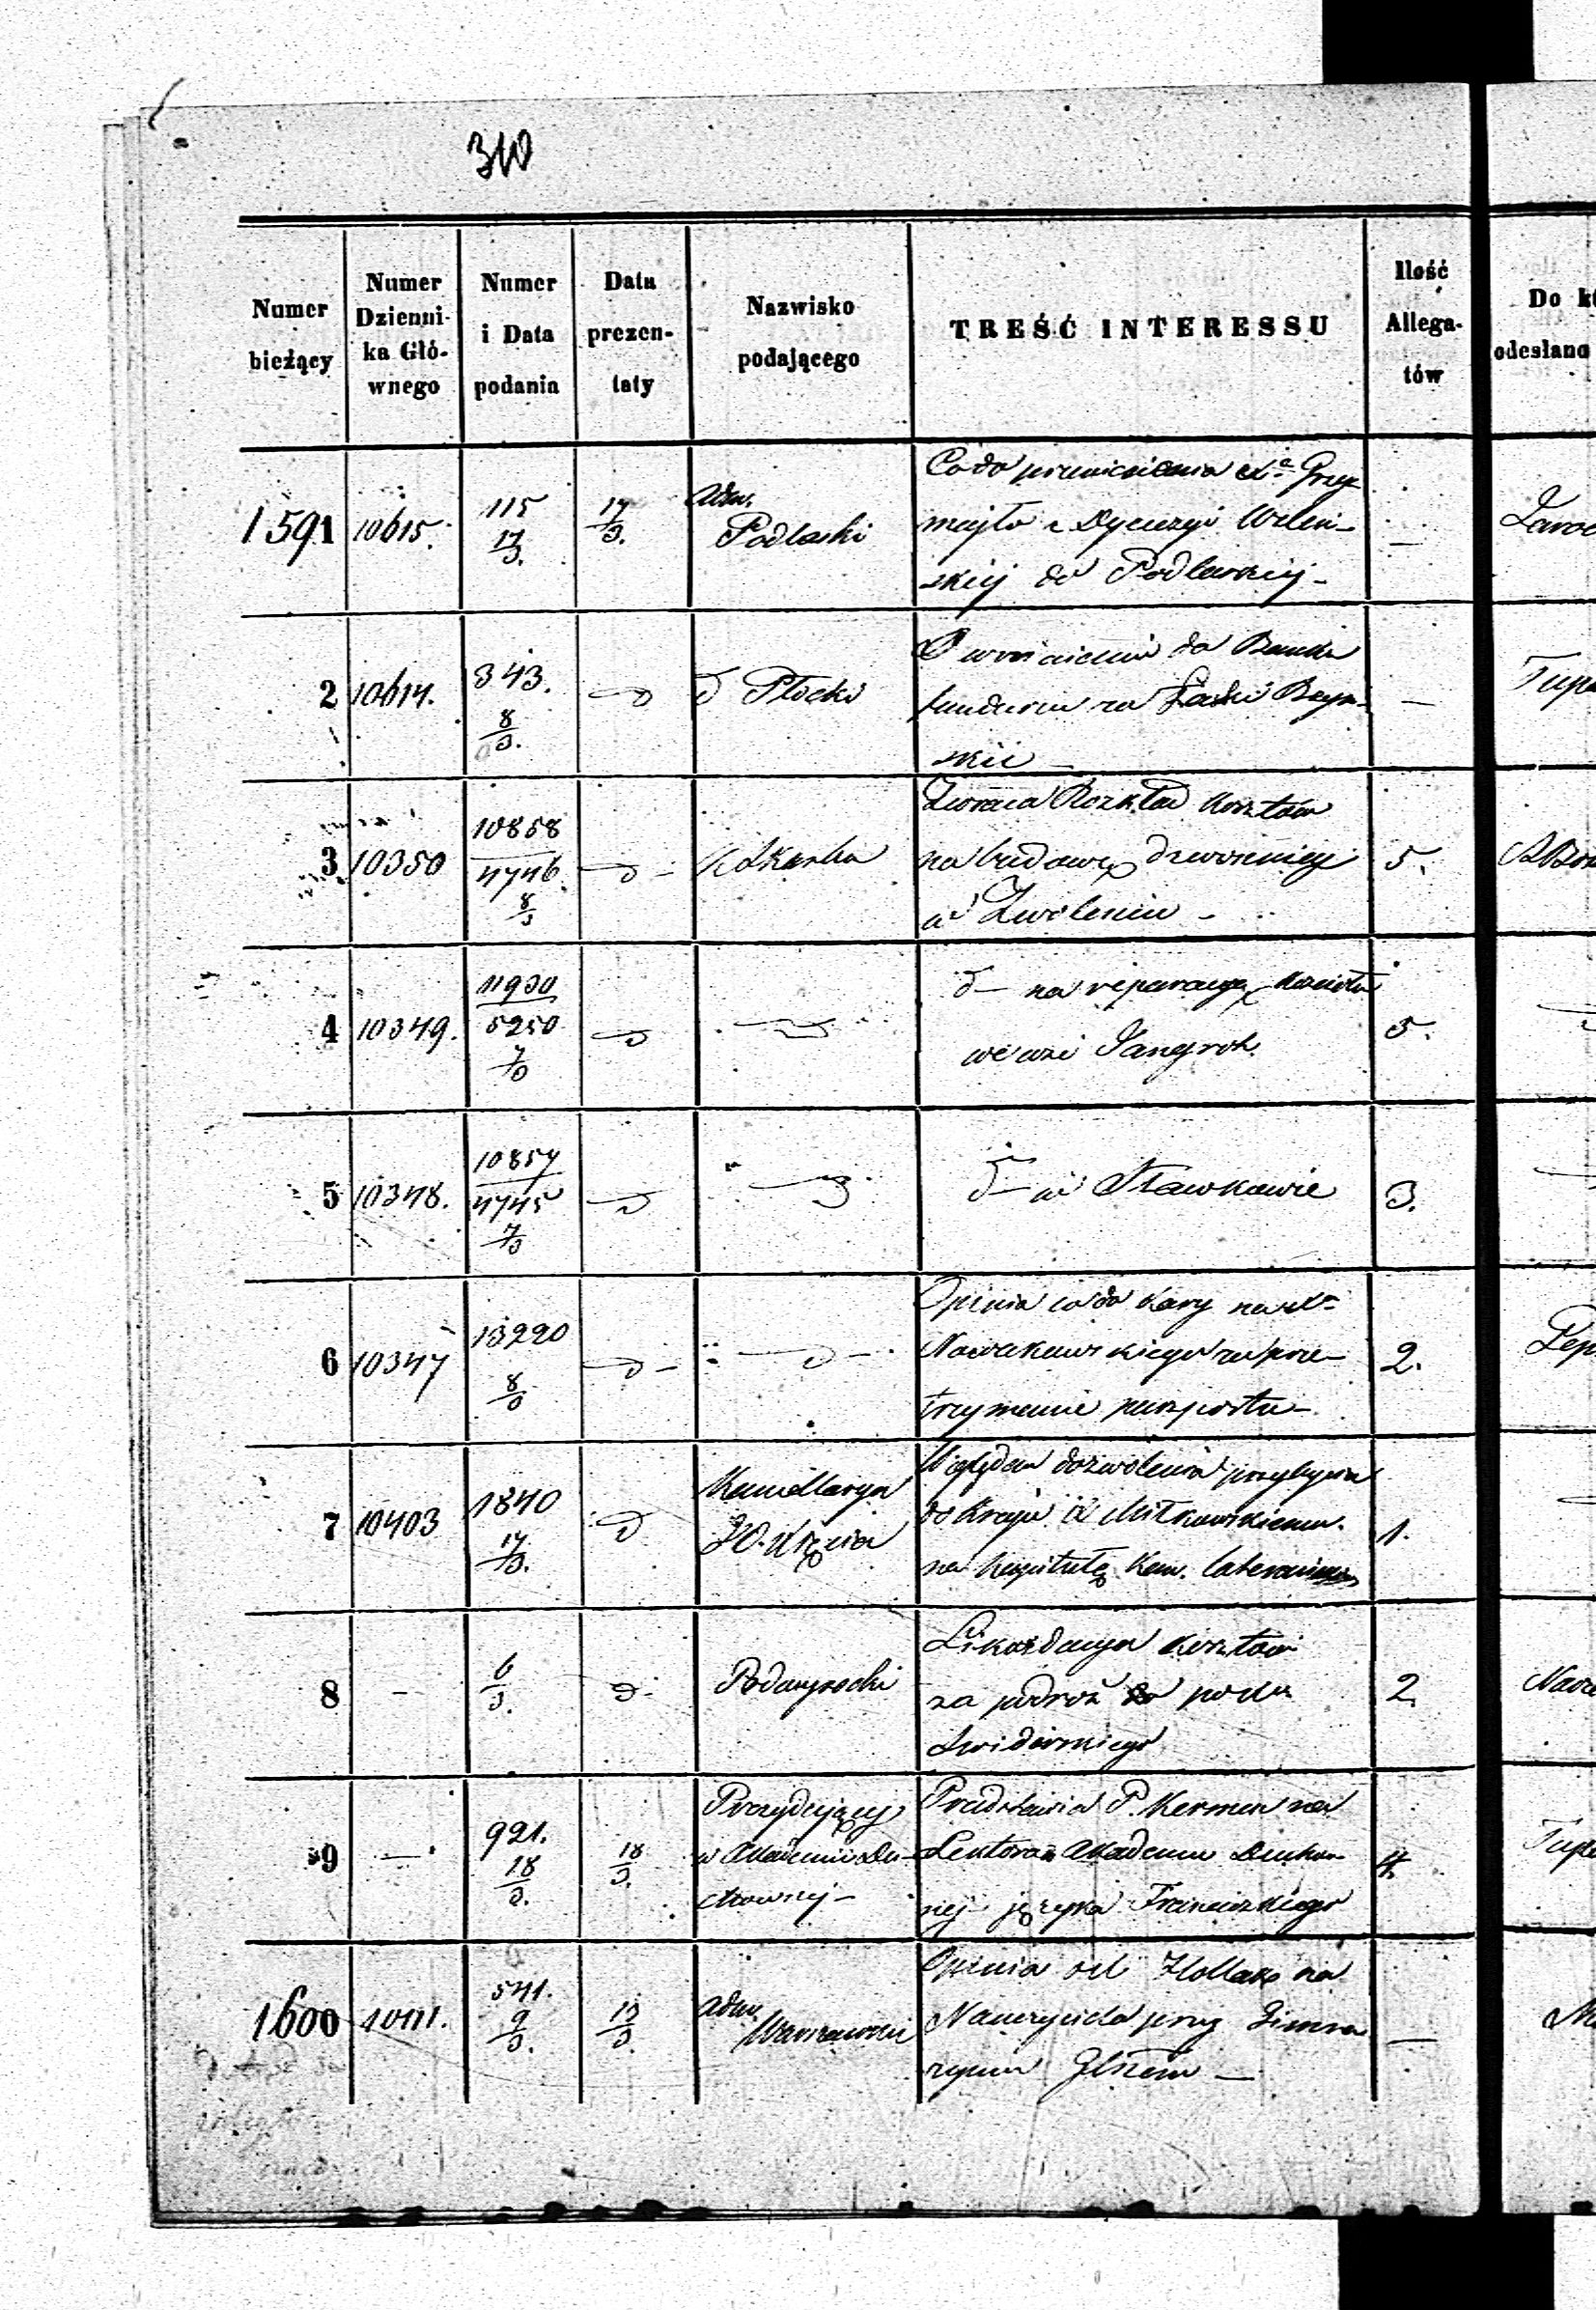 310
Numer bieżący | Numer Dzienni-ka Głó-wnego | Numer i Data podania | Data prezen-taty | Nazwisko podającego | TREŚĆ INTERESSU | Ilość Allega-tów | Do k odesłano
1591 | 10615. | 115 17/3. | 17/3. | Adm. Podlaski | Co do przeniesienia Xa Grzy
majło z Dyecezyi Wileń-
skiej do Podlaskiej - | —
2 | 10614. | 343. 8/3. | d | d Płocki | O wniesieniu do Banku
funduszu za
skie — | —
3 | 10350 | 10858 4746 8/3 | d - | K Skarbu | Zwraca Rozkład kosztów
na budowę dzwonnicy
w Zwoleniu - | 5.
4 | 10349. | 11930 5250 7/3 | d | d | d — na reparacyę kościoła
we wsi Jangrot. | 5.
5 | 10348. | 10857 4745 7/3 | d | d | d — w Sławkowie | 3.
6 | 10347 | 13220 8/3 | d - | d - | Opinia co do kary na Xa
Nowakowskiego za prze-
trzymanie paszportu - | 2.
7 | 10403 | 1840 17/3. | d | Kancellarya
JO. Księcia | Względem dozwolenia przybycia
do Kraju X Mitkowskiemu.
na Kapitułę Kan. Lateraneń | 1.
8 | - | 6/3. | d - | Podwysocki | Likwidacya kosztów
za podróż po Xa
Świderskiego | 2
9 | — | 921. 18/3. | 18/3. | Prezydujący
w Akademii Du-
chownej - | Przedstawia P. Kermen na
Lektora Akademii Duchow-
nej języka Francuzkiego | 4.
1600 | 10111. | 541. 9/3. | 18/3. | Adm.
Warszawski | Opinia Hollak na
Nauczyciela przy Gimna
zyum — | —